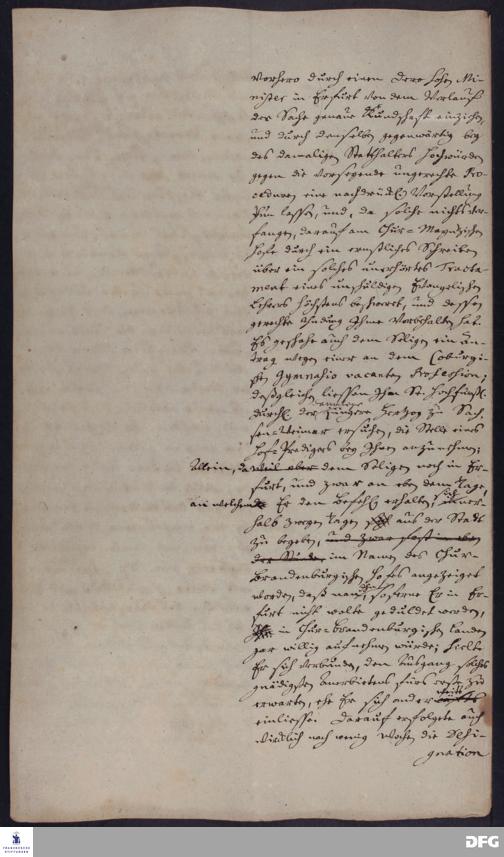 vorhero durch einen Dero hohen Mi-
nister in Erfurt von dem Verlauf
der Sache genaue Kundschaft einziehen,
und durch denselben gegenwärtig bey
des damaligen Statthalters Hochwürden
gegen die vorseyende ungerechte Pro-
ceduren eine nachdrückl. Vorstellung
thun lassen, und, da solche nichts ver-
fangen, darauf am Chur-Mayntzischen
Hofe durch ein ernstliches Schreiben
über ein solches unerhörtes Tracta-
ment eines unschuldigen Evangelischen
Lehrers höchstens beschweret, und dessen
gerechte Ahndung Ihme vorbehalten hat.
Es geschahe auch dem Seligen ein An-
trag wegen einer an dem Coburgi-
schen Gymnasio vacanten Profession;
desgleichen liessen Ihm Se. Hochfürstl.
Durchl. der Hertzog zu Sach-
sen-Weimar ersuchen, die Stelle eines
Hof-Predigers bey Ihnen anzunehmen;
Allein, da weil aber dem Seligen noch in Er-
furt, und zwar an eben dem Tage,
an welchem Er den Befehl erhalten, sich inner-
halb zweyen Tagen aus der Stadt
zu begeben, und zwar fast in eben
der Stunde im Namen des Chur-
Brandenburgischen Hofes angezeiget
worden, daß man Ihn, soferne Er in Er-
furt nicht wolte geduldet werden,
in Chur-Brandenburgischen Landen
gar willig aufnehmen würde; hielte
Er sich verbunden, den Ausgang solches
gnädigsten Anerbietens fürs erste zu
erwarten, ehe Er sich anderweit
einliesse. Darauf erfolgete auch
würcklich nach wenig Wochen die Desi-
gnation
FRANCKESCHE
STIFTUNGEN
DFG